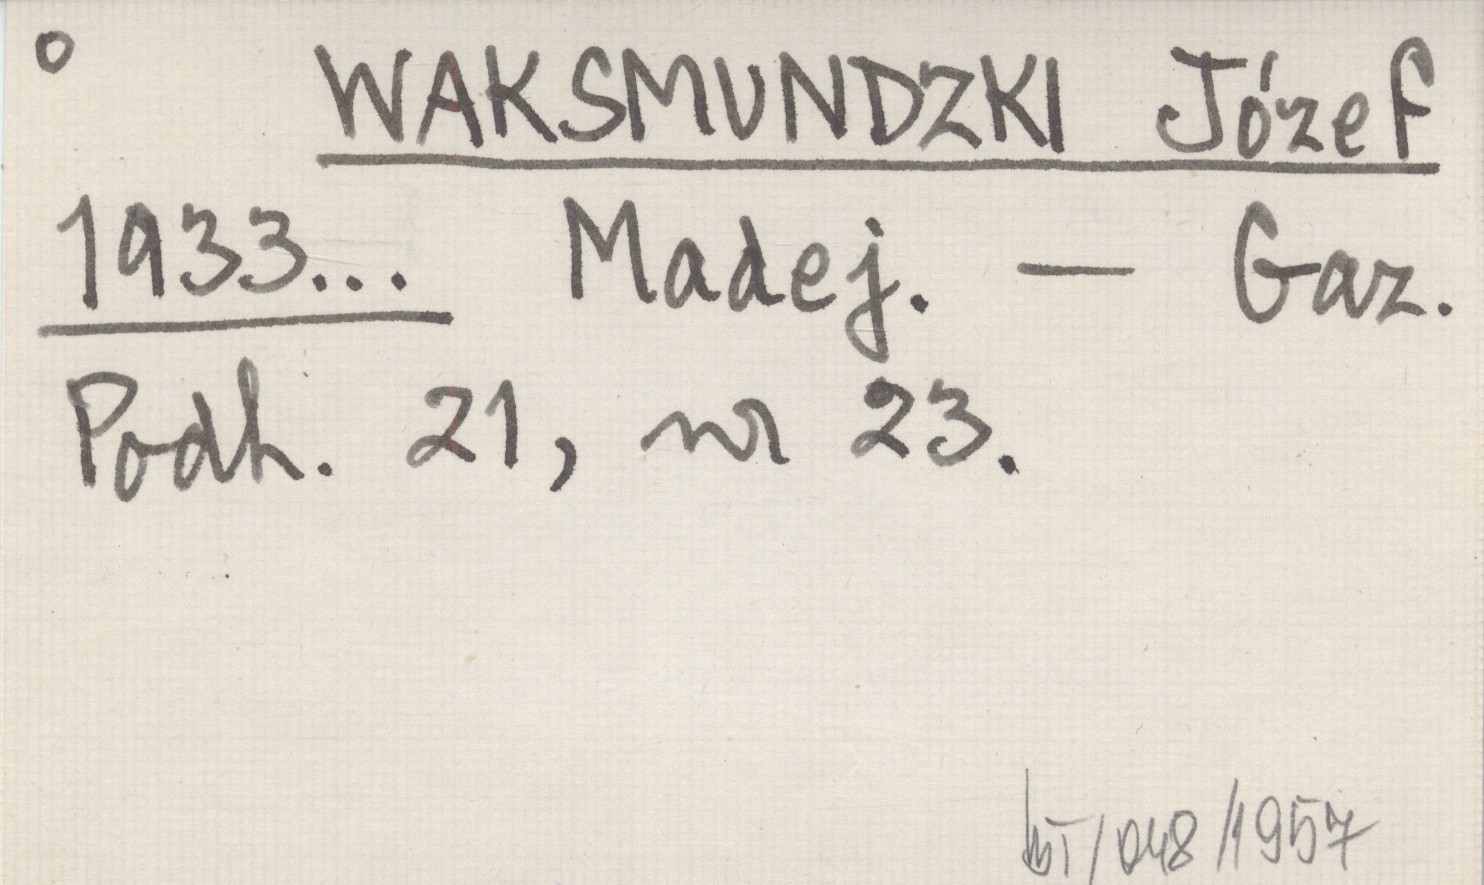 o WAKSMUNDZKI Józef
1933... Madej. — Gaz.
Podh. 21, nr 23.
/048/1957